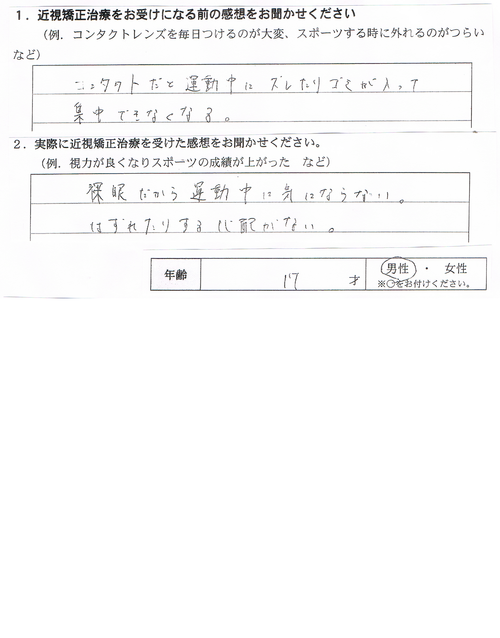 1．近視矯正治療をお受けになる前の感想をお聞かせください
（例．コンタクトレンズを毎日つけるのが大変、スポーツする時に外れるのがつらい
など）
コンタクトだと運動中にズレたりゴミが入って
集中できなくなる。
2．実際に近視矯正治療を受けた感想をお聞かせください。
（例．視力が良くなりスポーツの成績が上がった　など）
裸眼だから運動中に気にならない。
はずれたりする心配がない。
年齢 17 才 男性・女性
※○をお付けください。